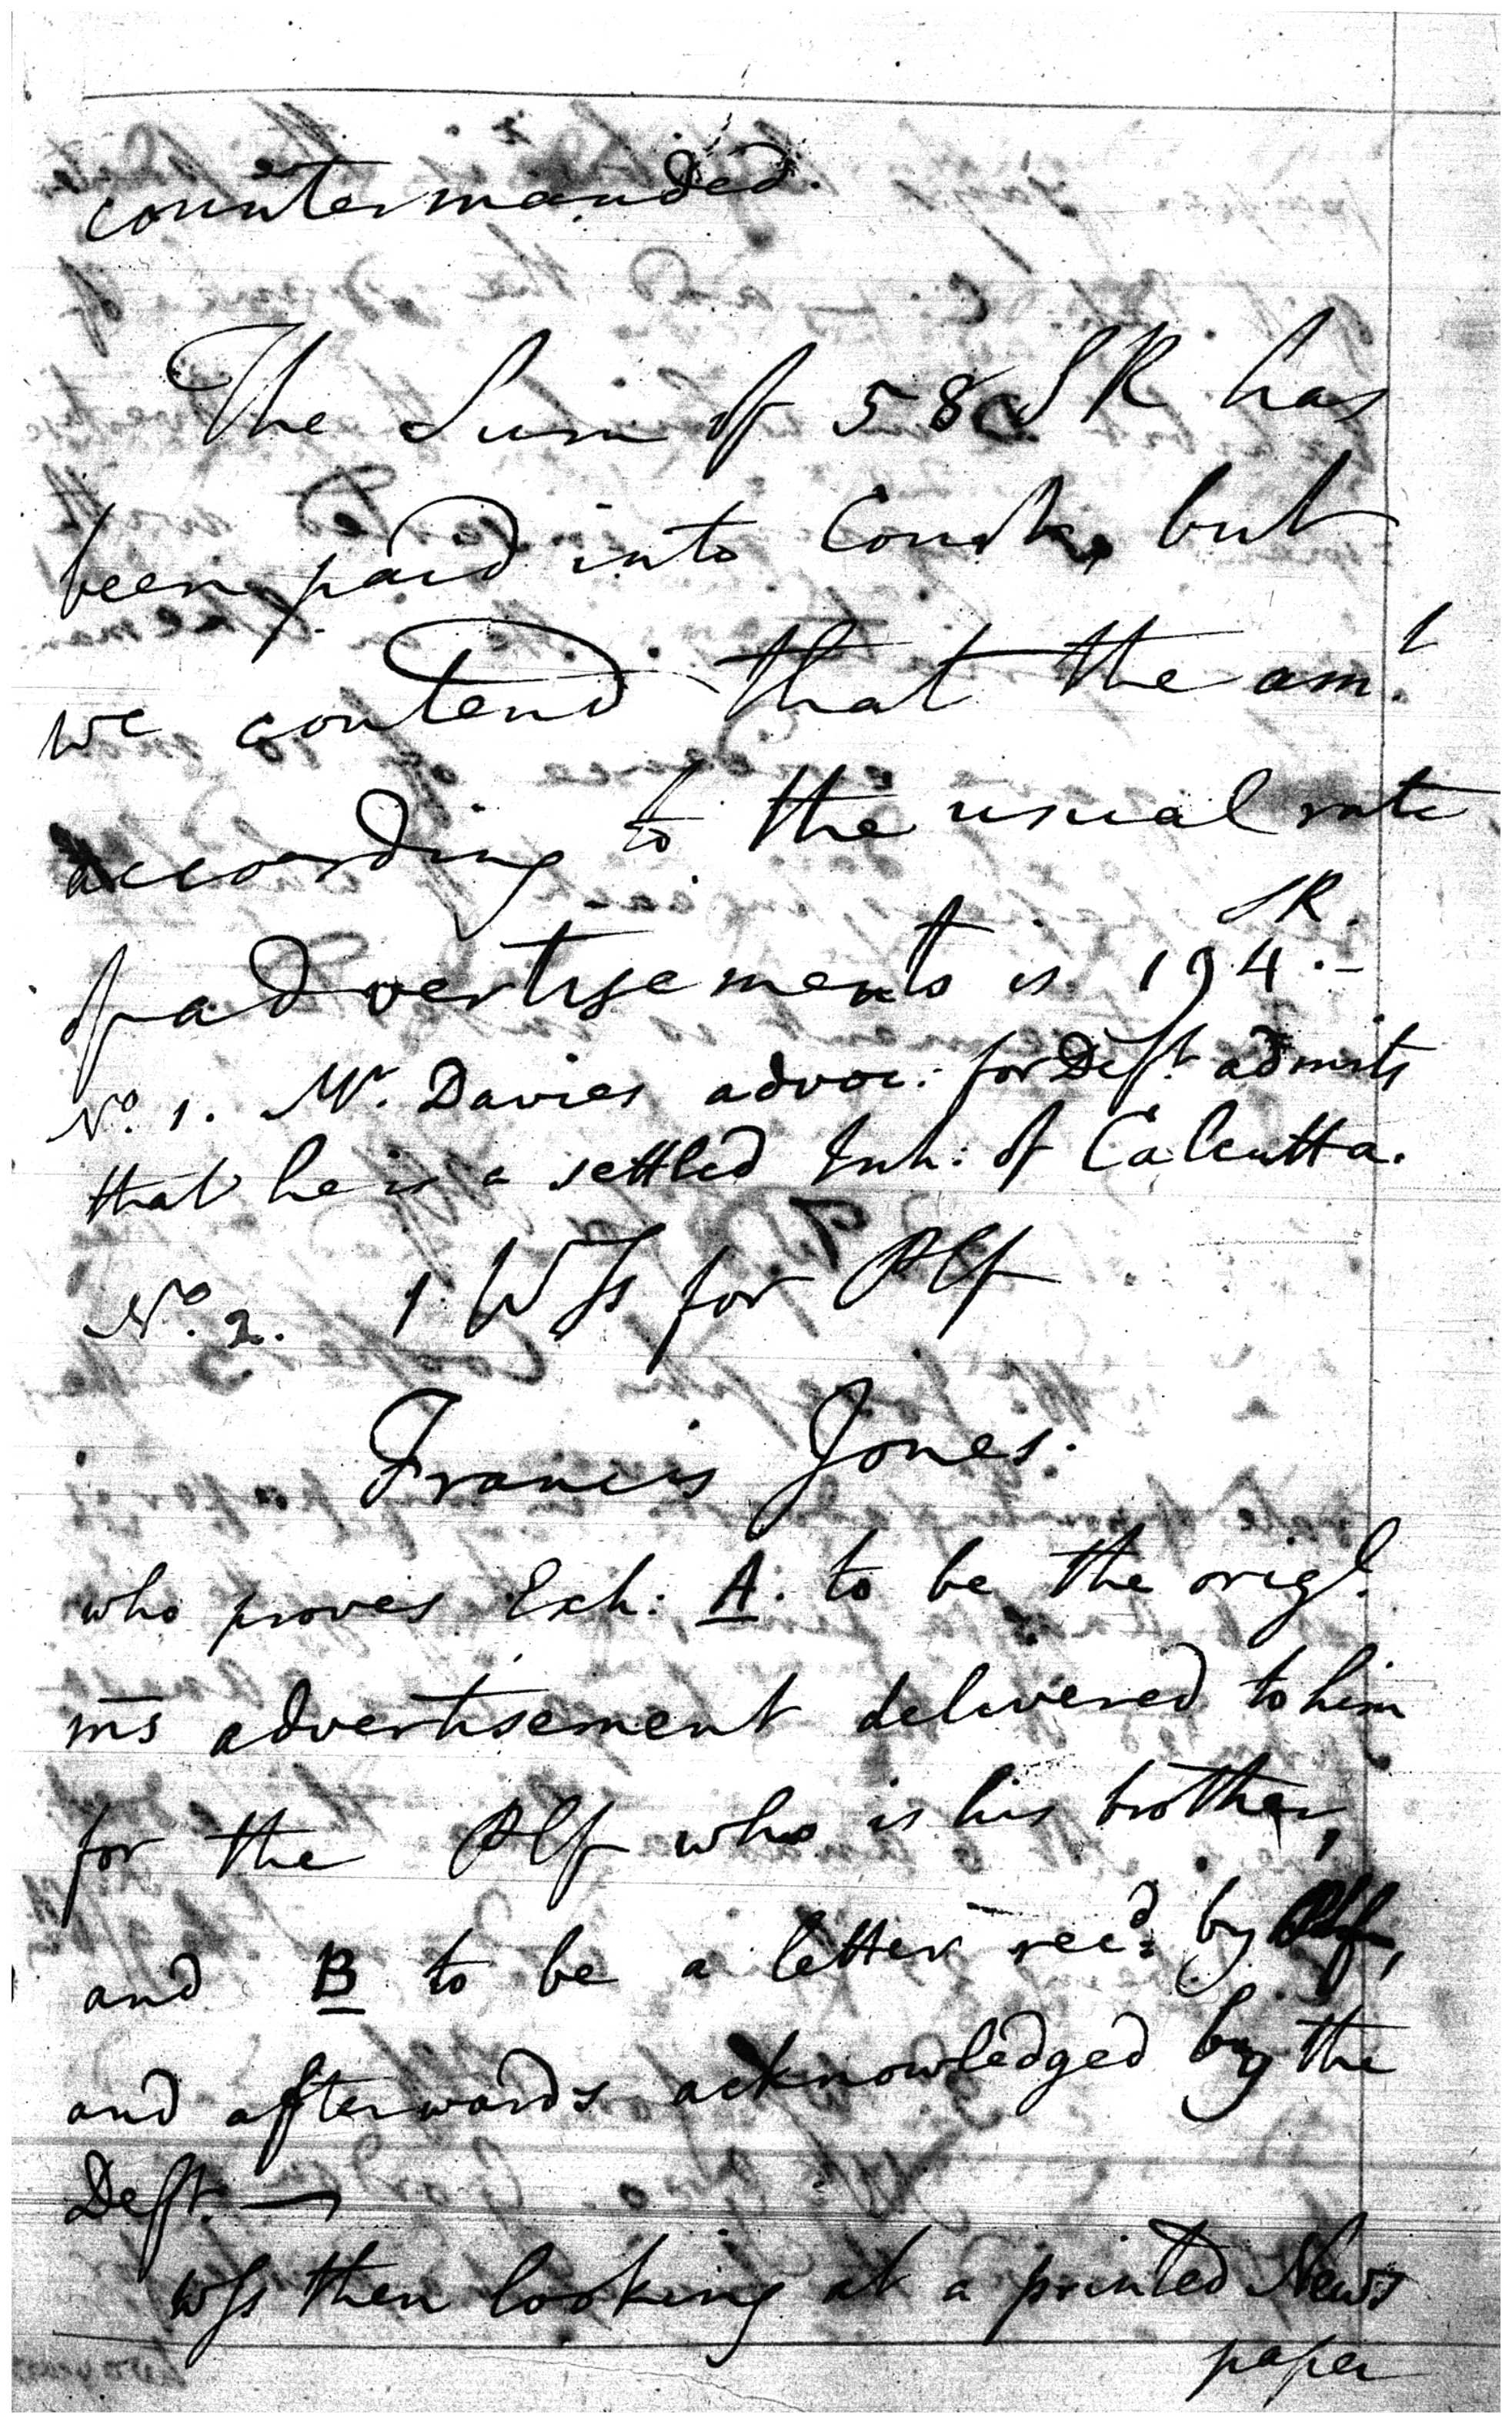 countermanded.
The Sum of 58 SR has
been paid into Court, but
we contend that the am.t
according to the usual rate
SR.
of advertisements is 194.-
No. 1. Mr. Davies advoc: for Deft. admits
that he is a settled Inh: of Calcutta.
No. 2. 1 Wss for Plf
Francis Jones.
who proves Exh: A. to be the origl.
ms advertisement delivered to him
for the Plf who is his brother,
and B to be a letter rec.d by Plf,
and afterwards acknowledged by the
Deft. —
Wss then looking at a printed News
paper